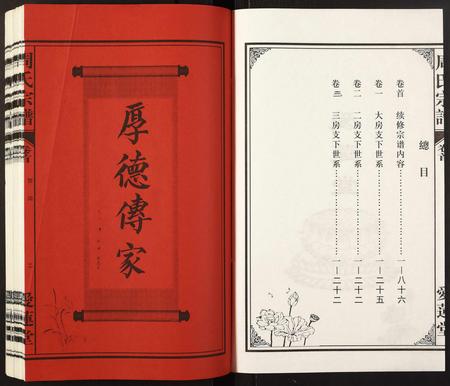 厚德傳家
周氏宗譜
卷首
愛蓮堂
總目
卷首 续修宗谱内容……………………一—八十六
卷一 大房支下世系……………………一—二十五
卷二 二房支下世系……………………一—二十二
卷三 三房支下世系……………………一—二十二
周氏宗譜
卷首
愛蓮堂